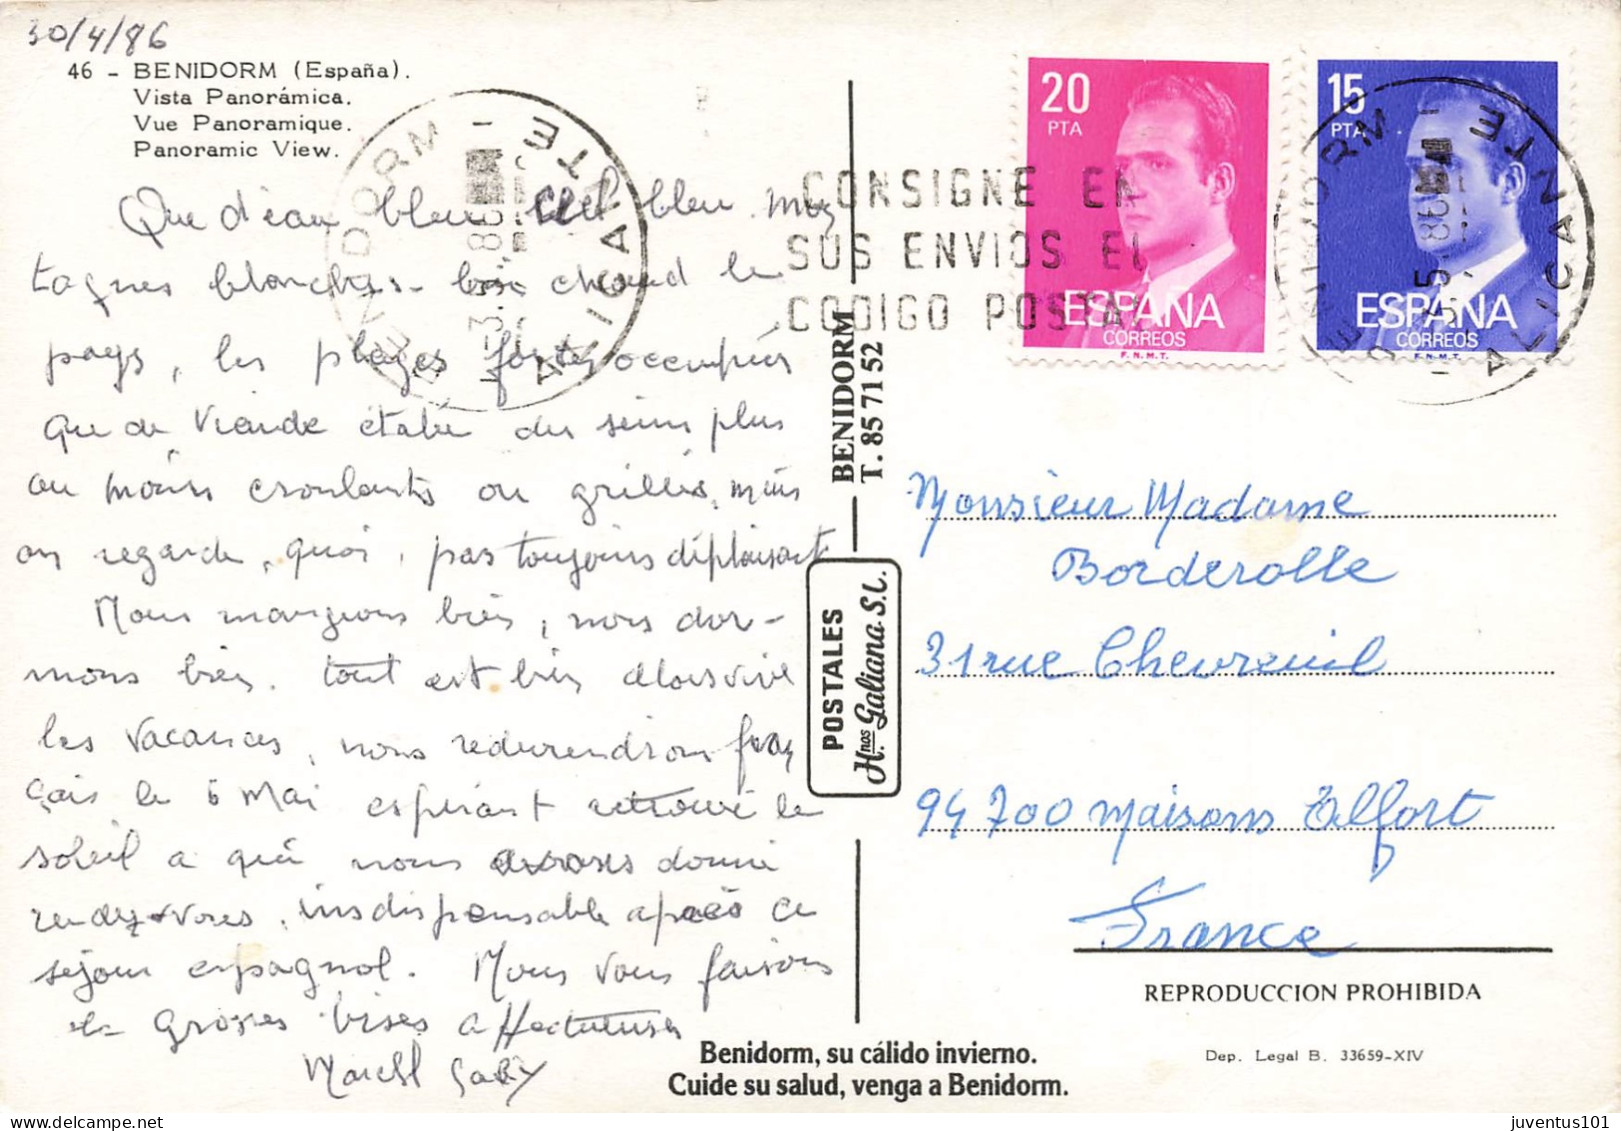 30/4/86
46 - BENIDORM (España).
Vista Panorámica.
Vue Panoramique.
Panoramic View.
Que d'eau bleu ciel bleu, mon
tagnes blanches - bien chaud le
pays, les plages fortes occupées
que de viande étalée des seins plus
ou moins croulants ou grillés, mais
on regarde, quoi, pas toujours déplaisant
Nous mangeons bien, nous dor-
mons bien. tout est bien alors vive
les vacances, nous redeviendrons fran
çais le 6 Mai espérant retrouver le
soleil a qui nous avons donné
rendez-vous, indispensable après ce
séjour espagnol. Nous vous faisons
de grosses bises affectueuses
Marcel Gaby
BENIDORM - ALICANTE
-3.5.86
CONSIGNE EN
SUS ENVIOS EL
CODIGO POSTAL
20
PTA
ESPAÑA
CORREOS
F.N.M.T.
15
PTA
ESPAÑA
CORREOS
F.N.M.T.
BENIDORM - ALICANTE
BENIDORM
T. 85 71 52
POSTALES
Hnos Galiana S.L.
Monsieur Madame
Borderolle
31 rue Chevreuil
94700 Maisons Alfort
France
REPRODUCCION PROHIBIDA
Dep. Legal B. 33659-XIV
Benidorm, su cálido invierno.
Cuide su salud, venga a Benidorm.
juventus101